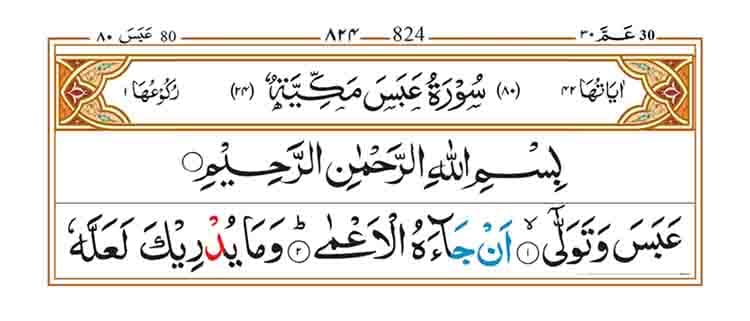 ٨٠ عَبَسَ 80 ٨٢٤ 824 عَمَّ ٣٠ 30
اٰيَاتُهَا ٤٢ (٨٠) سُوْرَةُ عَبَسَ مَكِّيَّةٌ (٢٤) رُكُوْعُهَا ١
بِسْمِ اللهِ الرَّحْمٰنِ الرَّحِيْمِ
عَبَسَ وَتَوَلّٰٓى ۙ ١ اَنْ جَآءَهُ الْاَعْمٰى ؕ ٢ وَمَا يُدْرِيْكَ لَعَلَّهٗ